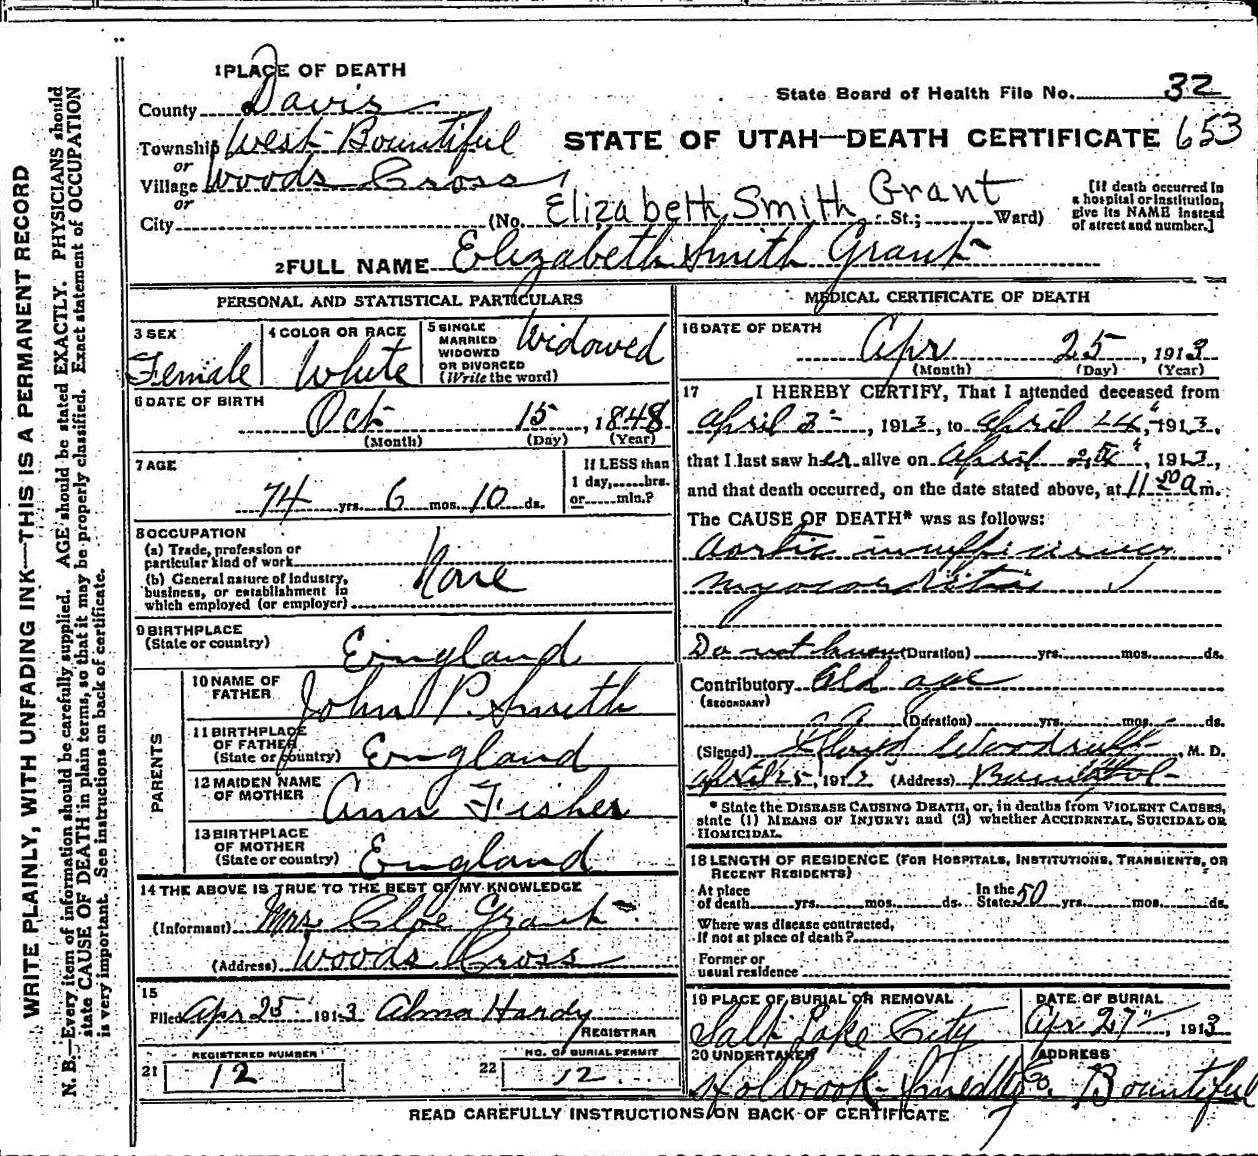 1 PLACE OF DEATH
County Davis
State Board of Health File No. 32
Township West Bountiful
STATE OF UTAH—DEATH CERTIFICATE 653
or
Village Woods Cross
or
City (No. Elizabeth Smith Grant St.; Ward)
[If death occurred in
a hospital or institution,
give its NAME instead
of street and number.]
2 FULL NAME Elizabeth Smith Grant
PERSONAL AND STATISTICAL PARTICULARS
3 SEX
Female
4 COLOR OR RACE
White
5 SINGLE
MARRIED
WIDOWED
OR DIVORCED
(Write the word)
Widowed
6 DATE OF BIRTH
Oct 15, 1848
(Month) (Day) (Year)
7 AGE
74 yrs. 6 mos. 10 ds.
If LESS than
1 day,.....hrs.
or.....min.?
8 OCCUPATION
(a) Trade, profession or
particular kind of work
(b) General nature of Industry,
business, or establishment in
which employed (or employer)
None
9 BIRTHPLACE
(State or country)
England
PARENTS
10 NAME OF
FATHER
John P. Smith
11 BIRTHPLACE
OF FATHER
(State or country)
England
12 MAIDEN NAME
OF MOTHER
Ann Fisher
13 BIRTHPLACE
OF MOTHER
(State or country)
England
14 THE ABOVE IS TRUE TO THE BEST OF MY KNOWLEDGE
(Informant) Mrs Cloe Grant
(Address) Woods Cross
15
Filed Apr 25 1913 Alma Hardy
REGISTRAR
21 REGISTERED NUMBER
12
22 NO. OF BURIAL PERMIT
12
MEDICAL CERTIFICATE OF DEATH
16 DATE OF DEATH
Apr 25, 1913
(Month) (Day) (Year)
17 I HEREBY CERTIFY, That I attended deceased from
April 2, 1913, to April 24, 1913,
that I last saw her alive on April, 1913,
and that death occurred, on the date stated above, at 11 a m.
The CAUSE OF DEATH* was as follows:
Aortic insufficiency
myocarditis
Do not know (Duration) yrs. mos. ds.
Contributory Old age
(SECONDARY)
(Duration) yrs. mos. ds.
(Signed) Lloyd Woodruff, M. D.
April 25, 1913 (Address) Bountiful
* State the DISEASE CAUSING DEATH, or, in deaths from VIOLENT CAUSES,
state (1) MEANS OF INJURY; and (2) whether ACCIDENTAL, SUICIDAL OR
HOMICIDAL.
18 LENGTH OF RESIDENCE (FOR HOSPITALS, INSTITUTIONS, TRANSIENTS, OR
RECENT RESIDENTS)
At place
of death yrs. mos. ds.
In the
State 50 yrs. mos. ds.
Where was disease contracted,
If not at place of death?
Former or
usual residence
19 PLACE OF BURIAL OR REMOVAL
Salt Lake City
DATE OF BURIAL
Apr 27, 1913
20 UNDERTAKER
Holbrook-Smedley Co.
ADDRESS
Bountiful
READ CAREFULLY INSTRUCTIONS ON BACK OF CERTIFICATE
WRITE PLAINLY, WITH UNFADING INK—THIS IS A PERMANENT RECORD
N. B.—Every item of information should be carefully supplied. AGE should be stated EXACTLY. PHYSICIANS should
state CAUSE OF DEATH in plain terms, so that it may be properly classified. Exact statement of OCCUPATION
is very important. See instructions on back of certificate.